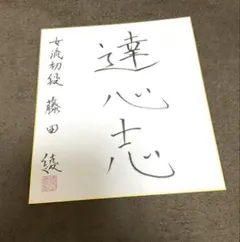 達心志
女流初段 藤田 綾